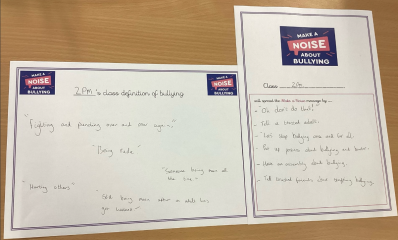 MAKE A
NOISE
ABOUT
BULLYING
MAKE A
NOISE
ABOUT
BULLYING
2PM 's class definition of bullying
"Fighting and over and over again."
"Being rude."
"Someone being mean all
the time."
"Hurting others"
"Still being mean after a while
MAKE A
NOISE
ABOUT
BULLYING
Class 2PM
will spread the Make a Noise message by...
- "Oh don't do that!"
- Tell a trusted adult.
- "Let's stop bullying once and for all."
- Put up posters about bullying not
- Have an assembly about bullying.
- Tell parents about bullying.